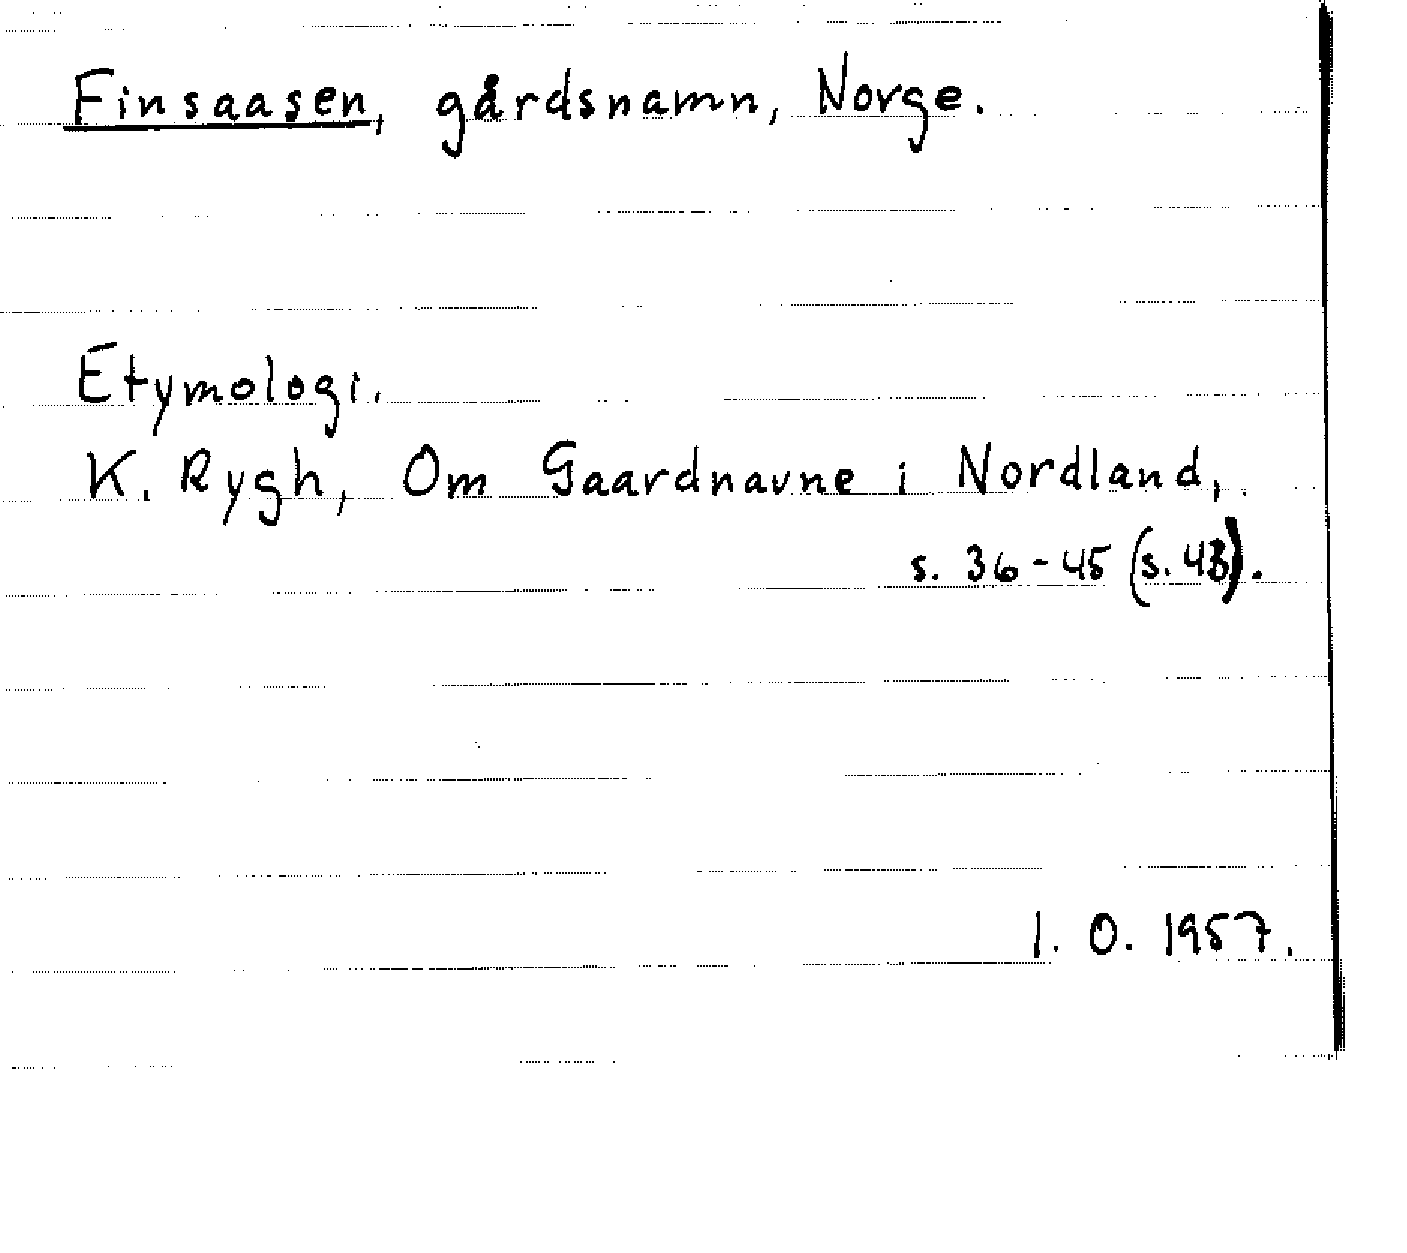 Finsaasen, gårdsnamn, Norge.
Etymologi.
K. Rygh, Om Gaardnavne i Nordland,
s. 36-45 (s. 43).
I. O. 1957.